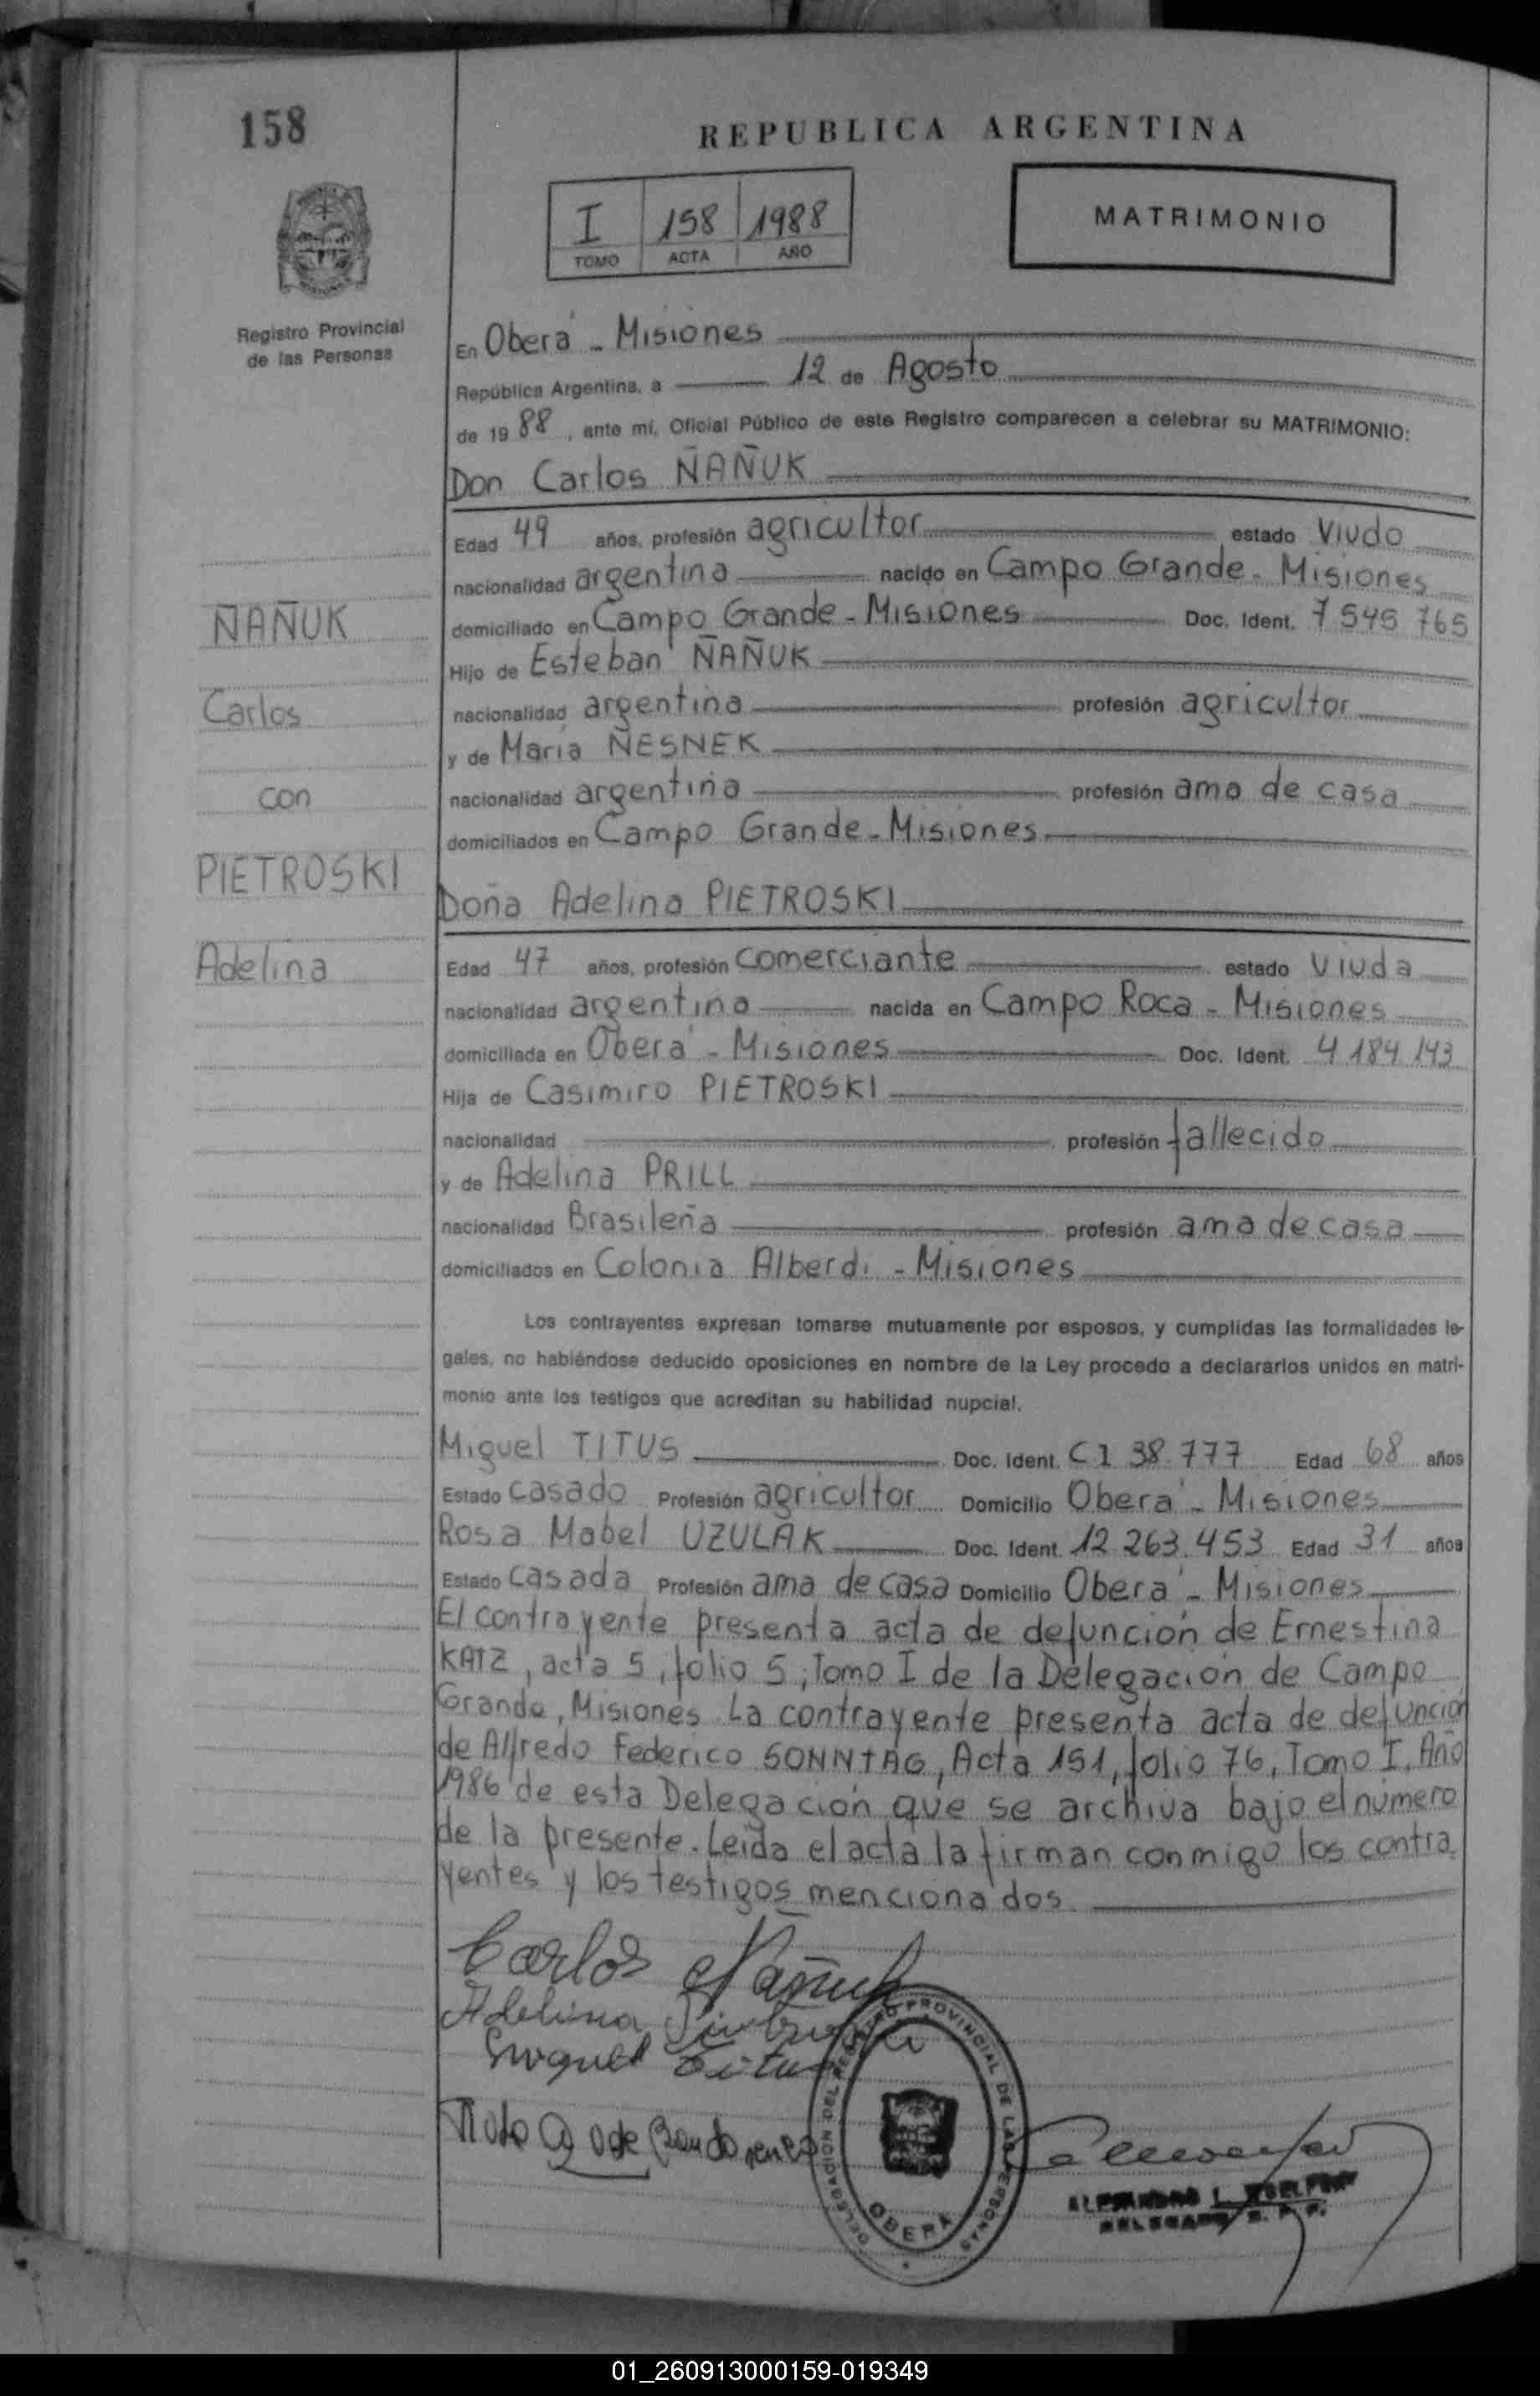 158
REPUBLICA ARGENTINA
I 158 1988
TOMO ACTA AÑO
MATRIMONIO
Registro Provincial
de las Personas
En Oberá - Misiones
República Argentina, a 12 de Agosto
de 1988, ante mí, Oficial Público de este Registro comparecen a celebrar su MATRIMONIO:
Don Carlos ÑAÑUK
Edad 49 años, profesión agricultor estado Viudo
nacionalidad argentina nacido en Campo Grande - Misiones
ÑAÑUK
domiciliado en Campo Grande - Misiones Doc. Ident. 7.545.765
Hijo de Esteban ÑAÑUK
Carlos
nacionalidad argentina profesión agricultor
y de María ÑESNEK
con
nacionalidad argentina profesión ama de casa
domiciliados en Campo Grande - Misiones
PIETROSKI
Doña Adelina PIETROSKI
Adelina
Edad 47 años, profesión comerciante estado Viuda
nacionalidad argentina nacida en Campo Roca - Misiones
domiciliada en Oberá - Misiones Doc. Ident. 4.184.143
Hija de Casimiro PIETROSKI
nacionalidad profesión fallecido
y de Adelina PRILL
nacionalidad Brasileña profesión ama de casa
domiciliados en Colonia Alberdi - Misiones
Los contrayentes expresan tomarse mutuamente por esposos, y cumplidas las formalidades le-
gales, no habiéndose deducido oposiciones en nombre de la Ley procedo a declararlos unidos en matri-
monio ante los testigos que acreditan su habilidad nupcial.
Miguel TITUS Doc. Ident. CI 38.777 Edad 68 años
Estado casado Profesión agricultor Domicilio Oberá - Misiones
Rosa Mabel UZULAK Doc. Ident. 12.263.453 Edad 31 años
Estado casada Profesión ama de casa Domicilio Oberá - Misiones
El contrayente presenta acta de defunción de Ernestina
KATZ, acta 5, folio 5, Tomo I de la Delegación de Campo
Grande, Misiones. La contrayente presenta acta de defunción
de Alfredo Federico SONNTAG, Acta 151, folio 76, Tomo I, Año
1986 de esta Delegación que se archiva bajo el número
de la presente. Leída el acta la firman conmigo los contra
yentes y los testigos mencionados.
Carlos Ñañuk
Adelina Pietroski
Miguel Titus
DELEGACION DEL REGISTRO PROVINCIAL DE LAS PERSONAS
OBERA
01_260913000159-019349